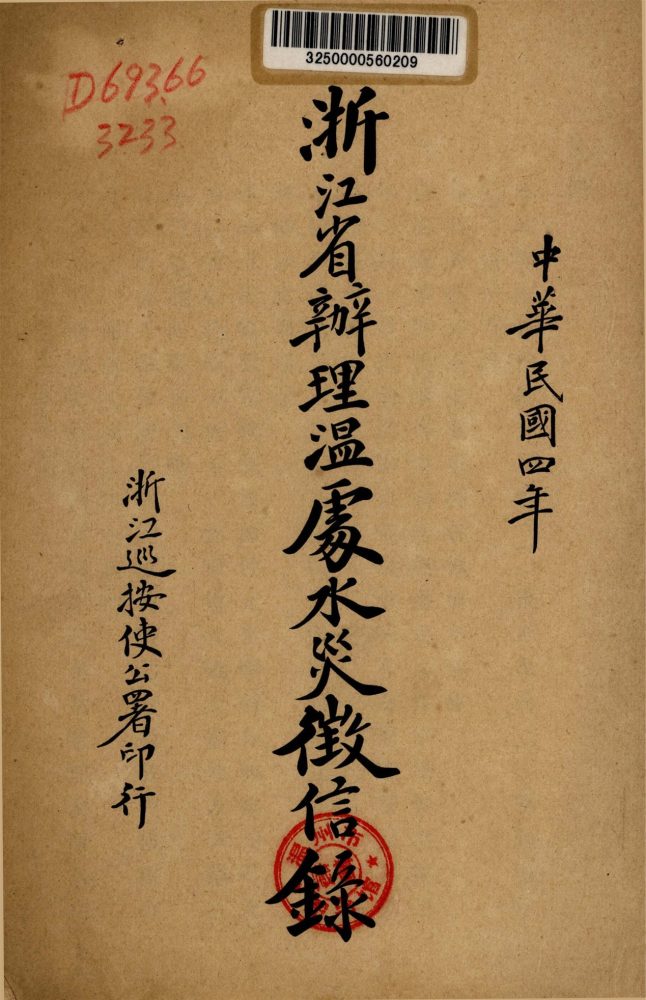 3250000560209
D693.66
3233
中華民國四年
浙江省辦理温處水災徵信錄
浙江巡按使公署印行